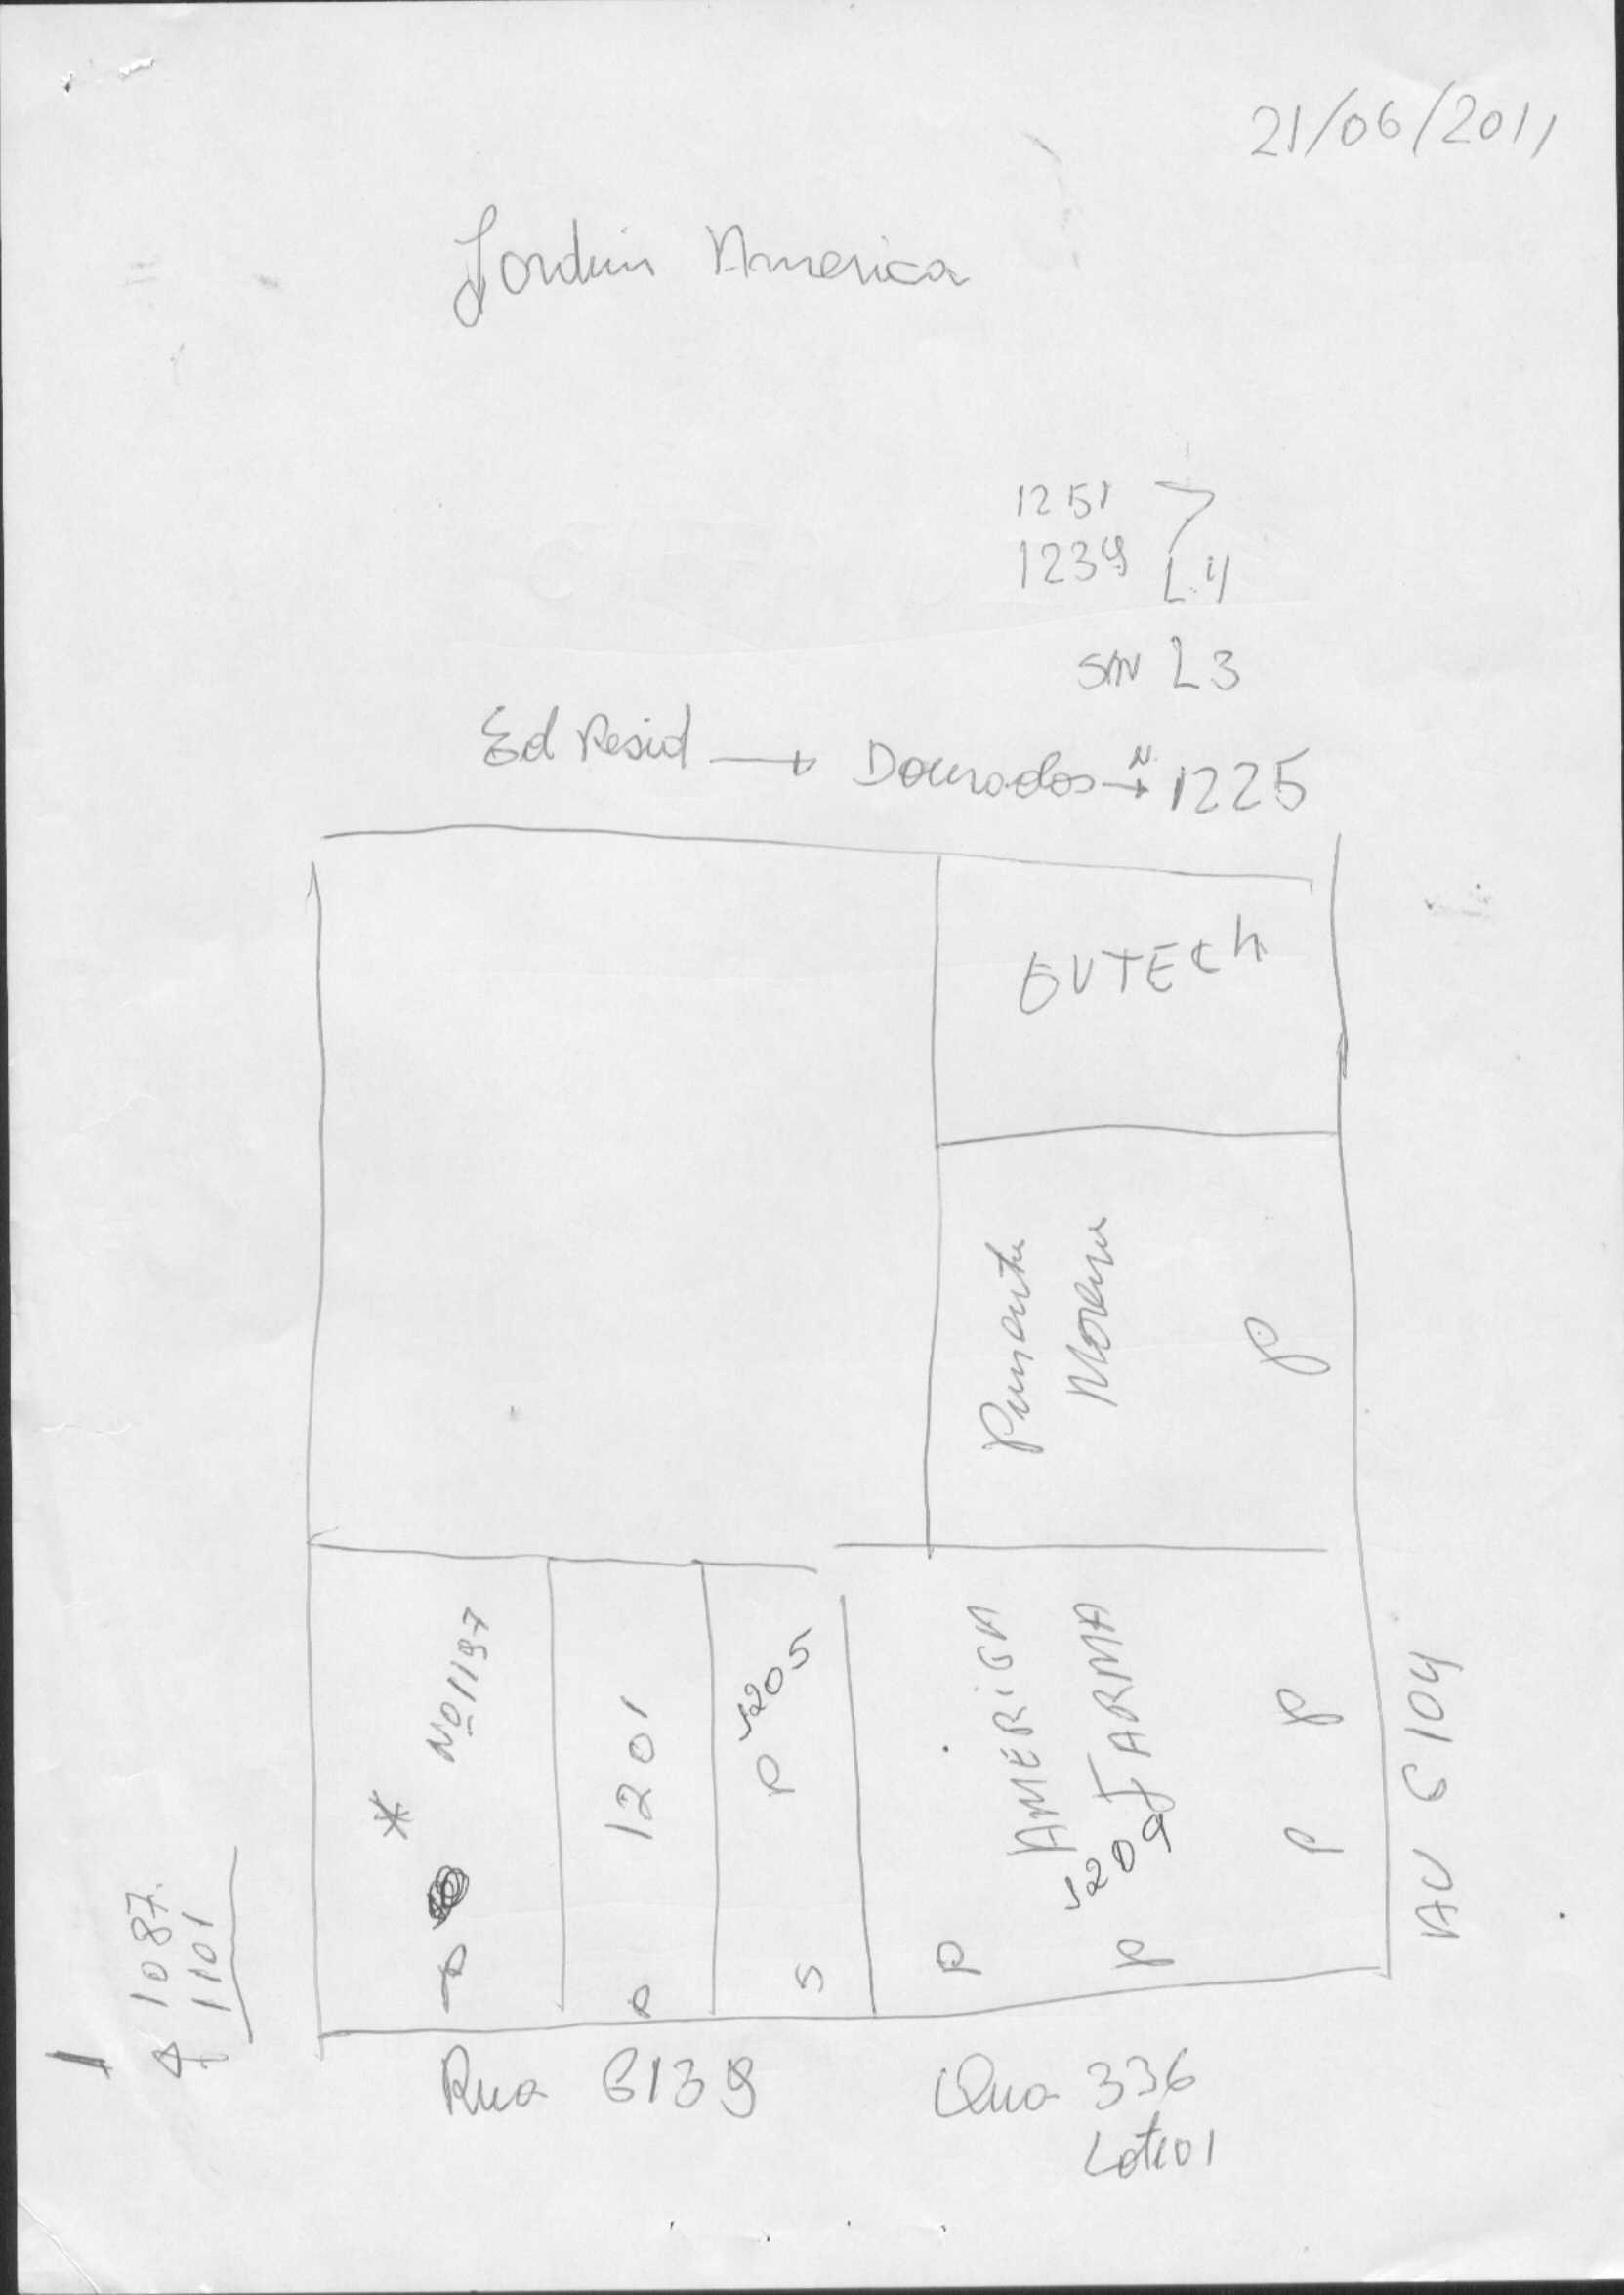 21/06/2011
Jardim America
1251
1239 L.4
S/N L3
Ed Resid → Dourados → N 1225
GVTECH
Pimenta
Morena
P
* Nº 1197
P
1201
P
P 1205
S
AMERICA
FARMA
1209
P P
P P
AV C 104
1087
1101
Rua C139
Qua 336
Lote 01